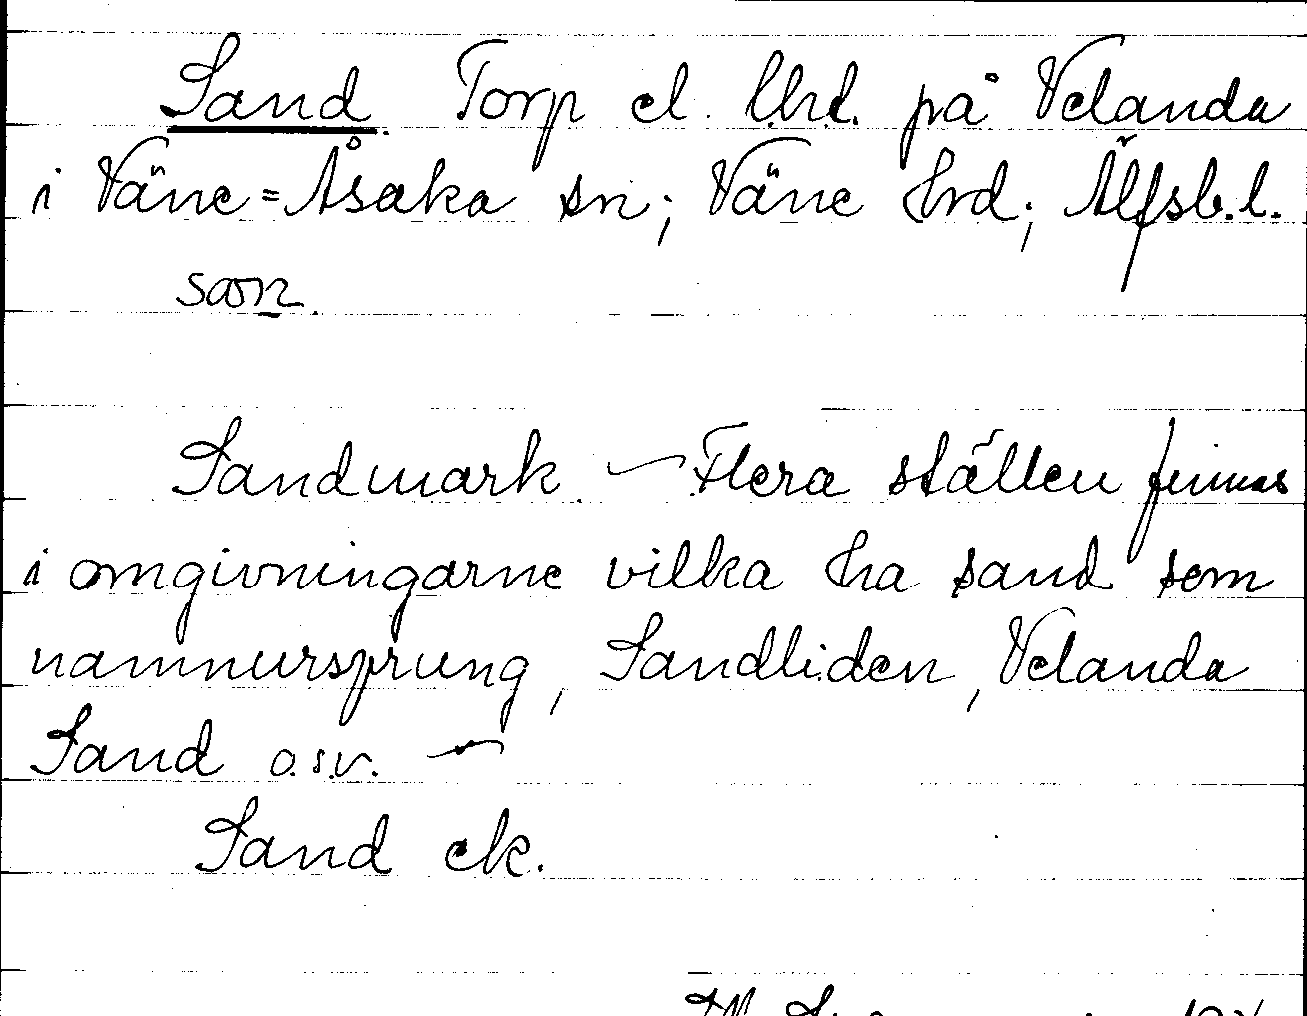 Sand. Torp el. l.hl. på Velanda
i Väne=Åsaka sn; Väne hrd; Älfsb.l.
san.
Sandmark. — Flera ställen finnas
i omgivningarne vilka ha sand som
namnursprung, Sandliden, Velanda
Sand o.s.v. —
Sand ek.